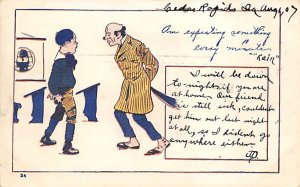 Cedar Rapids Ia Aug, 07
Am expecting something
every minute
"Rein"
I will be down
to night if you are
at home. Our friend
is still sick, couldn't
get him out last night
at all, so I didn't go
anywhere either.
24